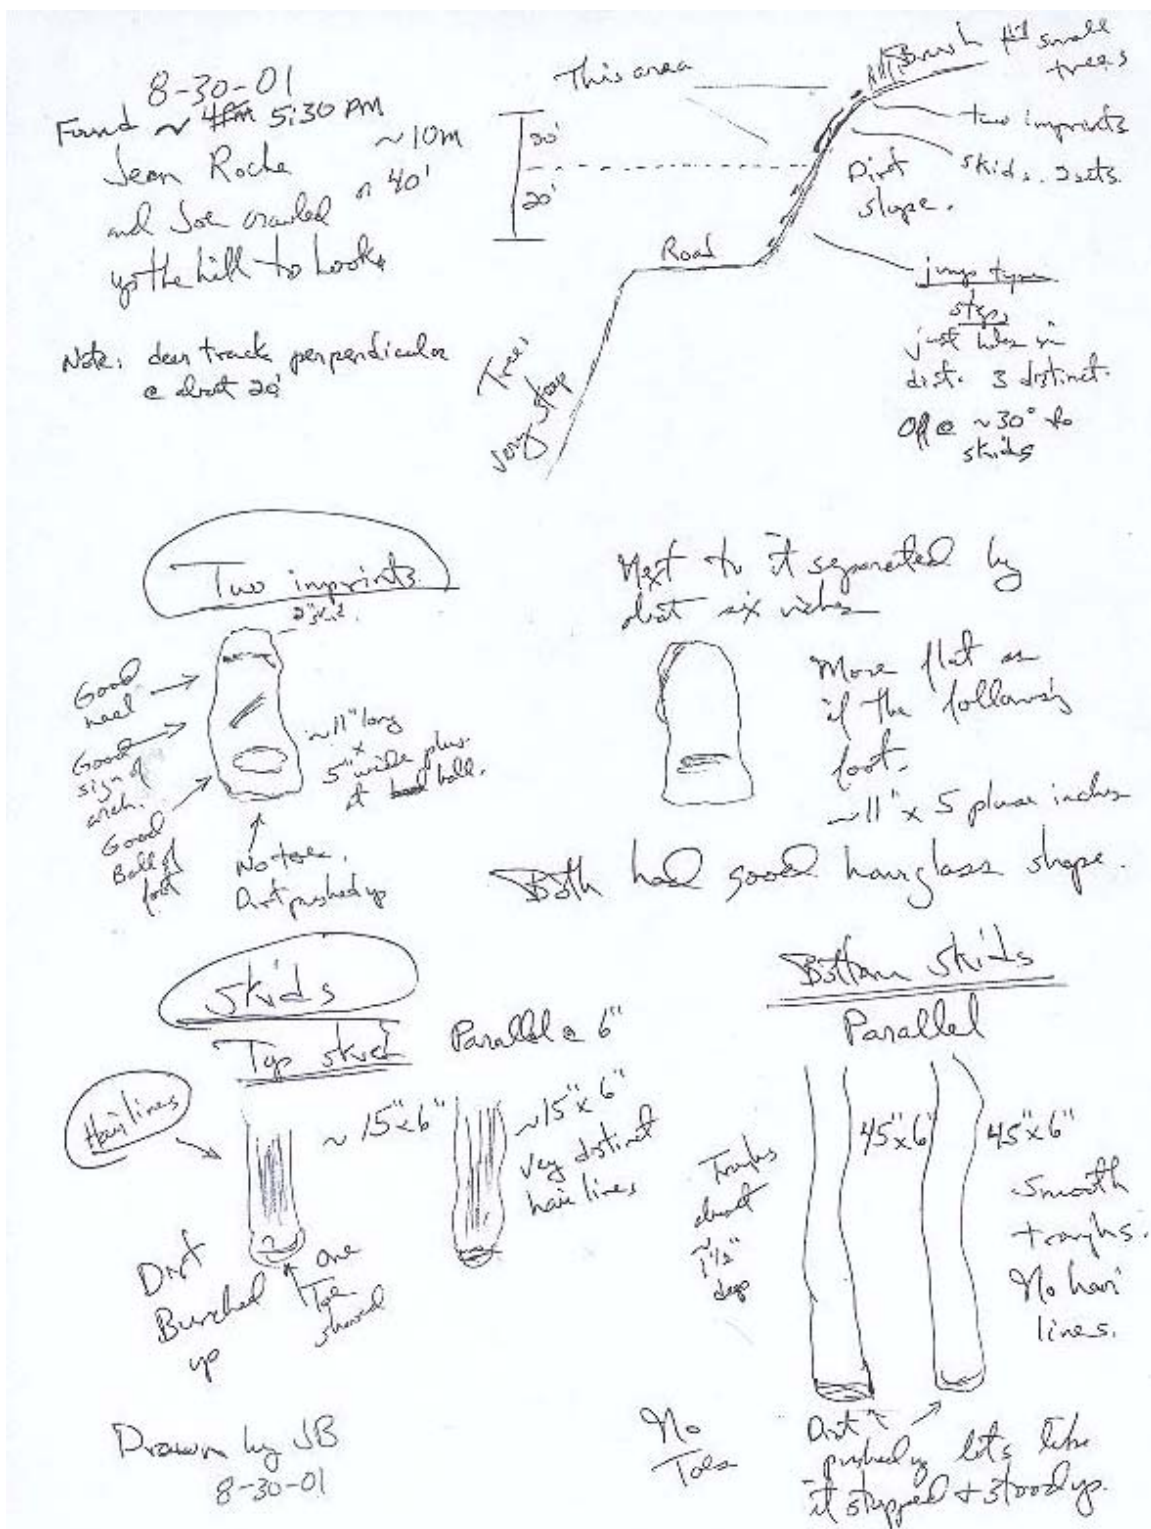 8-30-01
Found ~ 4PM 5:30 PM
Jean Roche
and Joe crawled
up the hill to look.
~10m
or 40'
Note: deer track perpendicular
@ about 20'
This area
20'
20'
Road
Trees
very steep
Brush small
trees
two imprints
skids. 2 sets.
Dirt
slope.
jump type
steps
just holes in
dirt. 3 distinct.
Off @ ~30° to
skids
Two imprints
Good
heel
Good
sign of
arch.
Good
Ball of
foot
~11" long
x
5" wide plus
at ball.
No toes.
Dirt pushed up
Next to it separated by
about six inches
More flat as
if the following
foot.
~11" x 5 plus inches
Both had good hourglass shape.
Skids
Top skid
Parallel @ 6"
Hair lines
~15"x6"
~15"x6"
very distinct
hair lines
Dirt
Bunched
up
one
Toe
showed
Bottom skids
Parallel
Troughs
about
~
1 1/2"
deep
45"x6"
45"x6"
Smooth
troughs.
No hair
lines.
No
Toes
Dirt
pushed up lots like
it stopped + stood up.
Drawn by JB
8-30-01